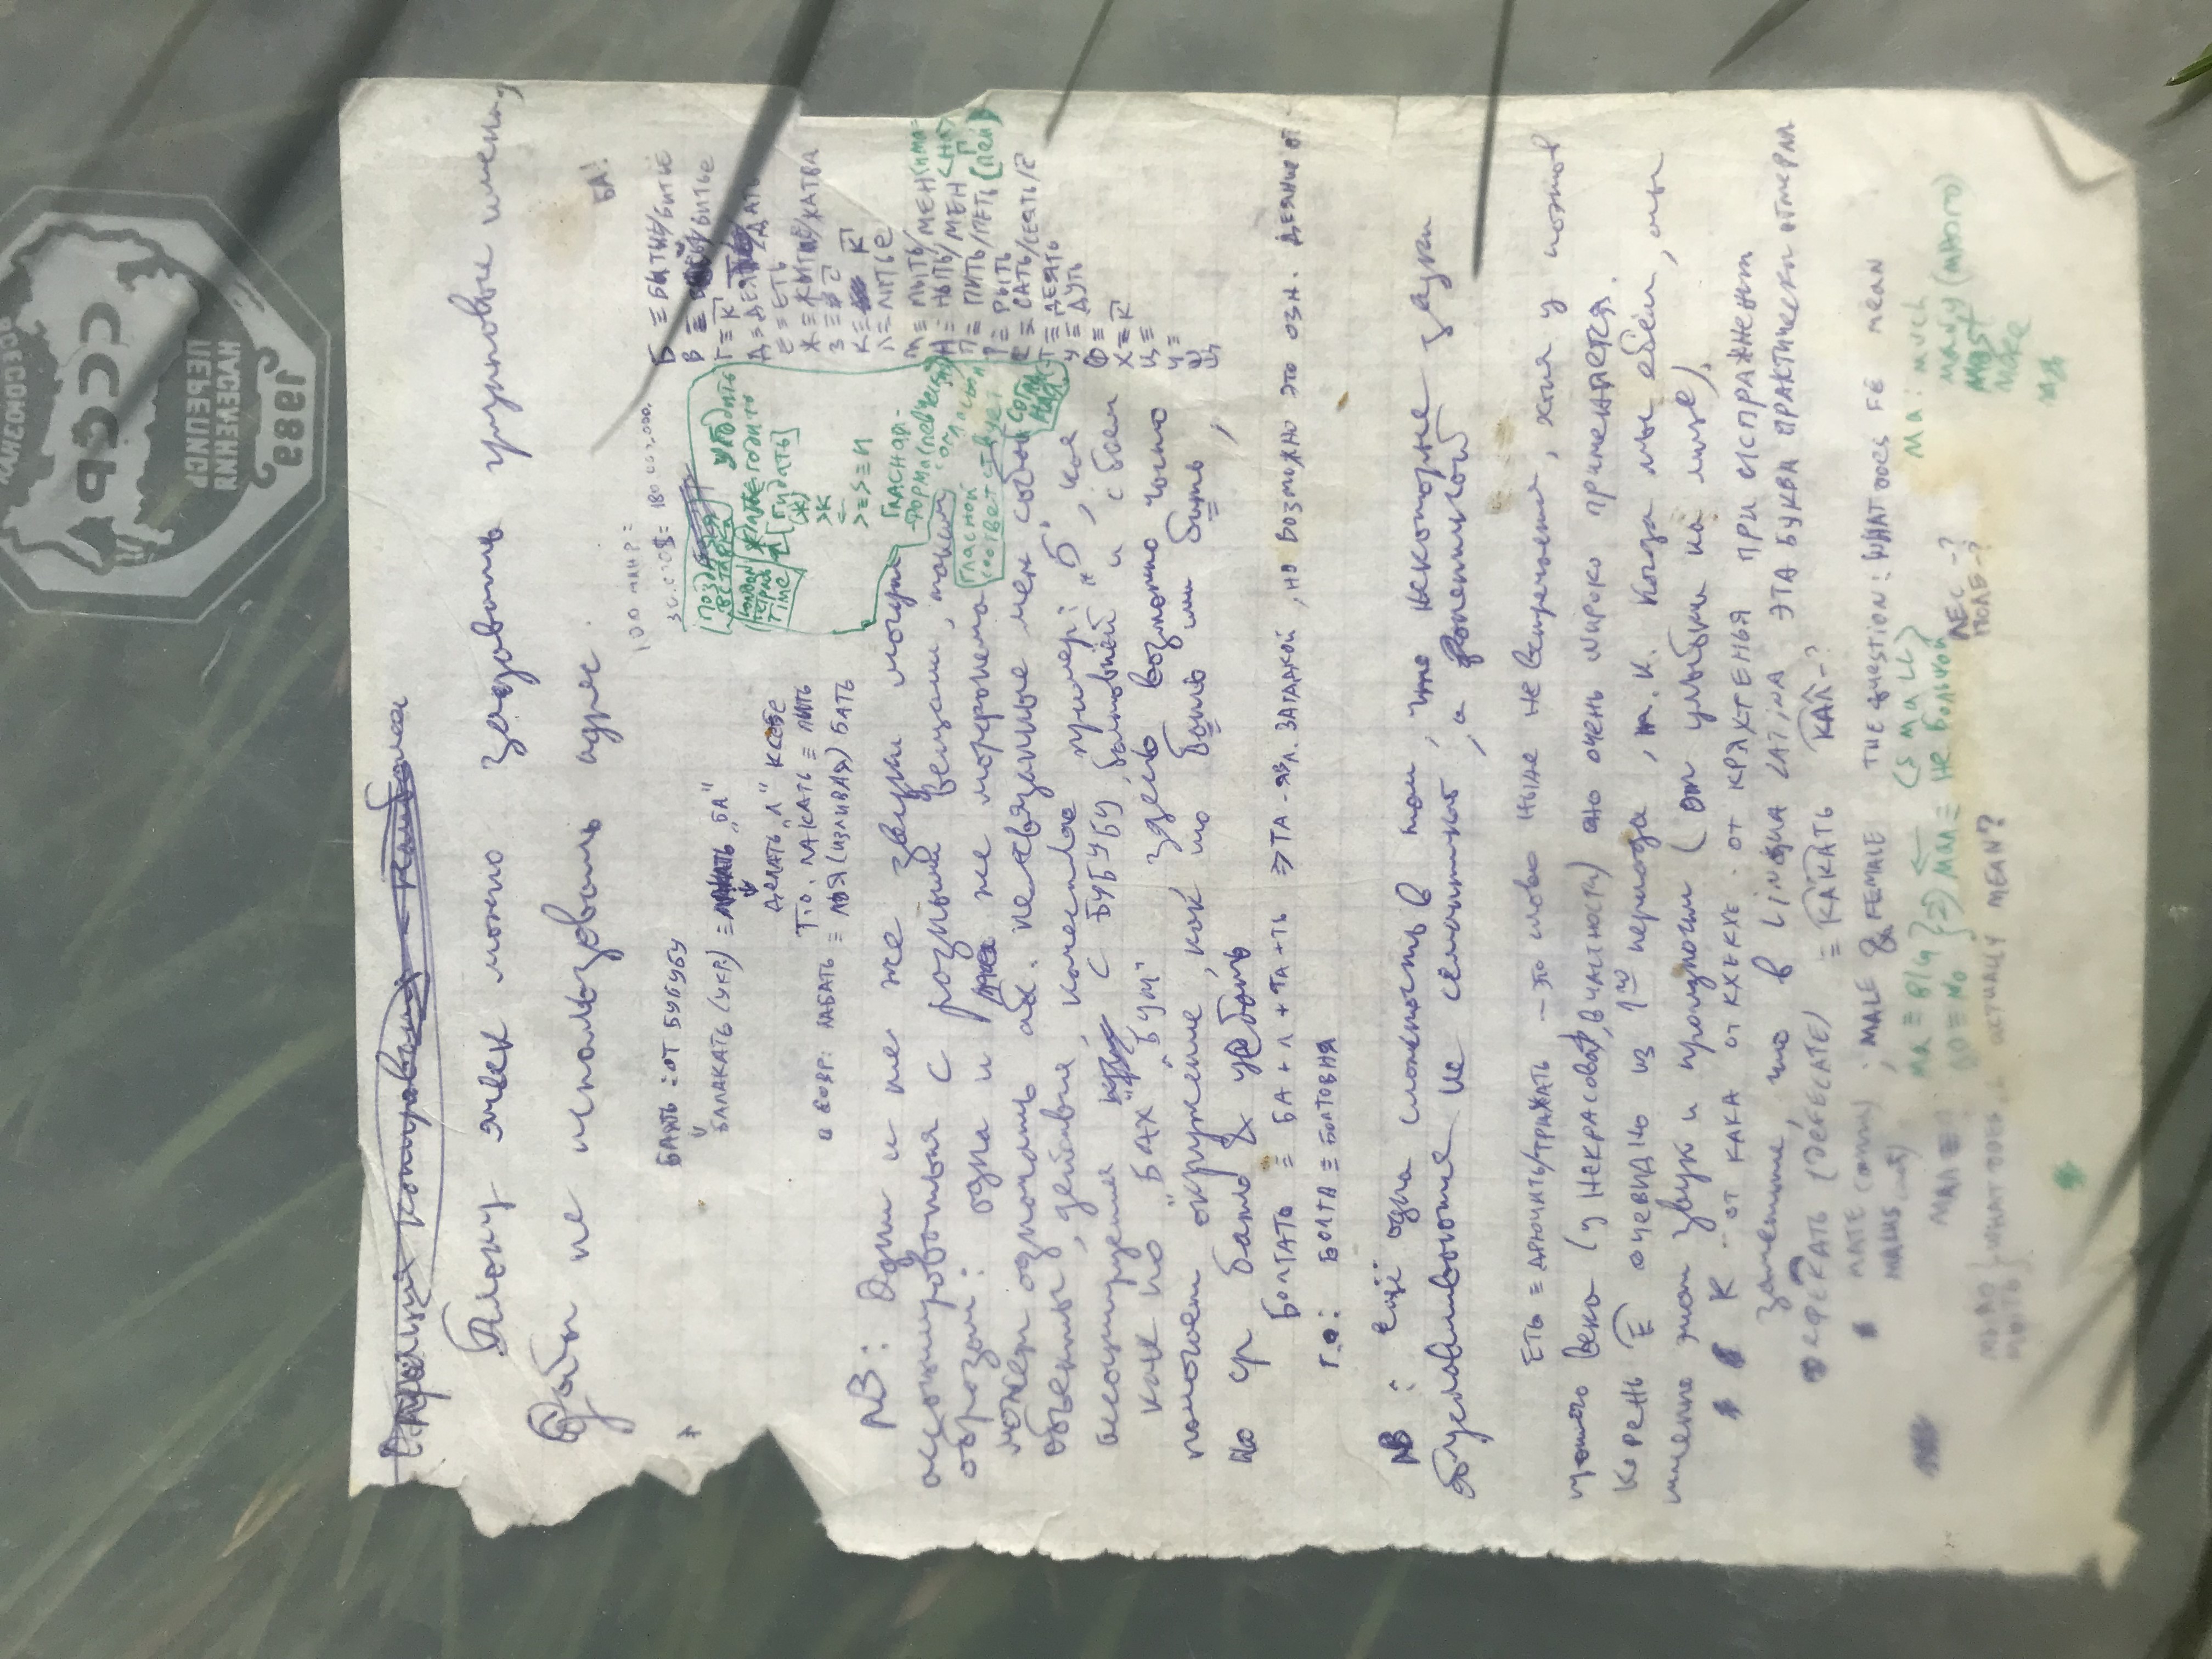 ВСЕСОЮЗНАЯ
СССР
ПЕРЕПИСЬ
НАСЕЛЕНИЯ
1989
копирования - наиболее
Блоку ячеек можно задавать групповые имена,
дабы не использовать адрес.
БА!
100 млн р =
30.000$ = 180.000.000.
БАЯТЬ : ОТ БУБУБУ
БАЛАКАТЬ (УКР.) ≡ ЛАКАТЬ „БА"
ДЕЛАТЬ „Л" К СЕБЕ
Т.О. ЛАКАТЬ ≡ ПИТЬ
СОВР: ЛАБАТЬ ≡ ЛЬЯ (ИЗЛИВАЯ) БАТЬ
ПОЗДНЯЯ
ВСТАВКА
LONDON
ТЕТРАДЬ
TIME
УГОДИТЬ
ГОДИТЬ
(Ж)
>K
←
ГЛАСНАЯ-
ГЛАСНОЙ
СООТВЕТСТВУЕТ
СОГЛА
Б ≡ БЫТЬЕ/БИТЬЕ
В ≡ ВИТЬЕ
Г ≡ К
Д ≡ ДЕЯТЬ/ДАТЬ
Е ≡ ЕТЬ
Ж ≡ ЖЫТЬЕ/ЖАТВА
З ≡ С
К ≡ К
Л ≡ ЛИТЬЕ
М ≡ МЫТЬ/МЕН
Н ≡ НЫТЬ/МЕН <НА>
П ≡ ПИТЬ/ПЕТЬ (пей)
Р ≡ РЫТЬ
С ≡ САТЬ/СЕЯТЬ/С
Т ≡ ДЕЯТЬ
У ≡ ДУТЬ
Ф ≡
Х ≡ К
Ц ≡
Ч ≡
Щ
NB: Одни и те же звуки могут
ассоциироваться с разными вещами, таким
образом: одна и та же морфонема
может означать абс. не связанные меж собой
объекты, действия, качества пример: „Б", кое
ассоциируется с БУБУБУ, болтовнёй и с боем
как то „БАХ" „БУМ", здесь возможно часто
помогает окружение, как то бать или бить,
но ср бать & уебать
БОЛТАТЬ ≡ БА + Л + ТА + ТЬ ⇒ ТА - ЯВЛ. ЗАГАДКОЙ, НО ВОЗМОЖНО ЭТО ОЗН. ДЕЯНИЕ
Т.О: БОЛТА ≡ БОЛТОВНЯ
NB : Ещё одна сложность в том, что некоторые звуки
обуславливаются не семантикой, а фонетикой
ЕТЬ ≡ ДРЮЧИТЬ/ТРАХАТЬ - это слово ныне не встречается, хотя у поэтов
прошлого века (у Некрасова, в частности) оно очень широко применяется.
Корень Е очевидно из 1го периода, т.к. когда мы ебём, мы
именно этот звук и произносим (от улыбки на лице).
К - ОТ КАКА ОТ КХЕКХЕ - ОТ КРЯХТЕНЬЯ ПРИ ИСПРАЖНЕНИИ
заметьте, что в LINGUA LATINA ЭТА БУКВА ПРАКТИЧЕСКИ отмерла
ДЕФЕКАТЬ (DEFECATE) ≡ КАКАТЬ КАЛ - ?
MATE ; MALE & FEMALE THE QUESTION: WHAT DOES FE MEAN
МАЛ ≡
Ma ≡ BIG
≡ NO
⇒ Мал ≡ Не большой
← (SMALL)
ЛЕС - ?
ПОЛЕ - ?
Ma : much
many (МНОГО)
Most
More
МЫЛО
МЫТЬ
WHAT DOES L ACTUALLY MEAN?